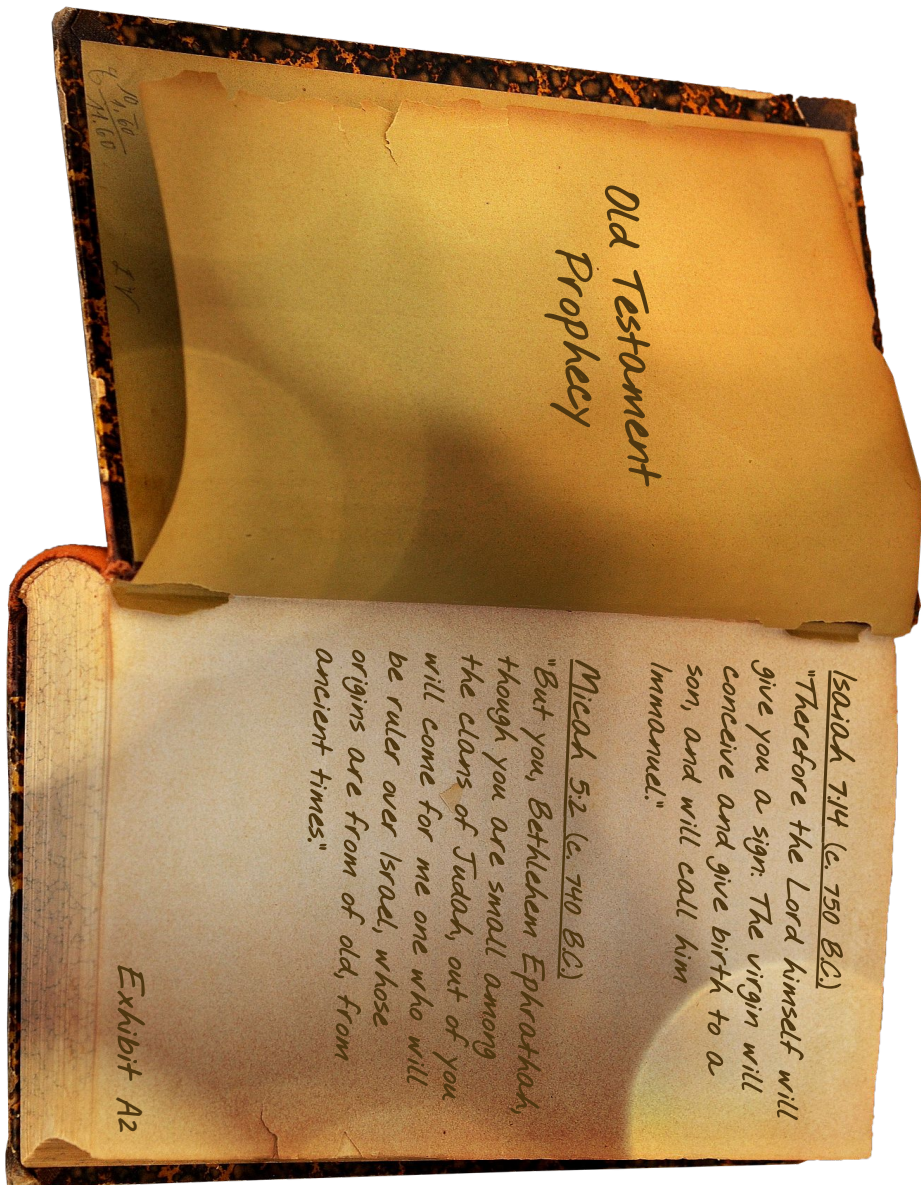 Old Testament
Prophecy
Isaiah 7:14 (c. 750 B.C.)
"Therefore the Lord himself will
give you a sign: The virgin will
conceive and give birth to a
son, and will call him
Immanuel."
Micah 5:2 (c. 740 B.C.)
"But you, Bethlehem Ephrathah,
though you are small among
the clans of Judah, out of you
will come for me one who will
be ruler over Israel, whose
origins are from of old, from
ancient times."
Exhibit A2